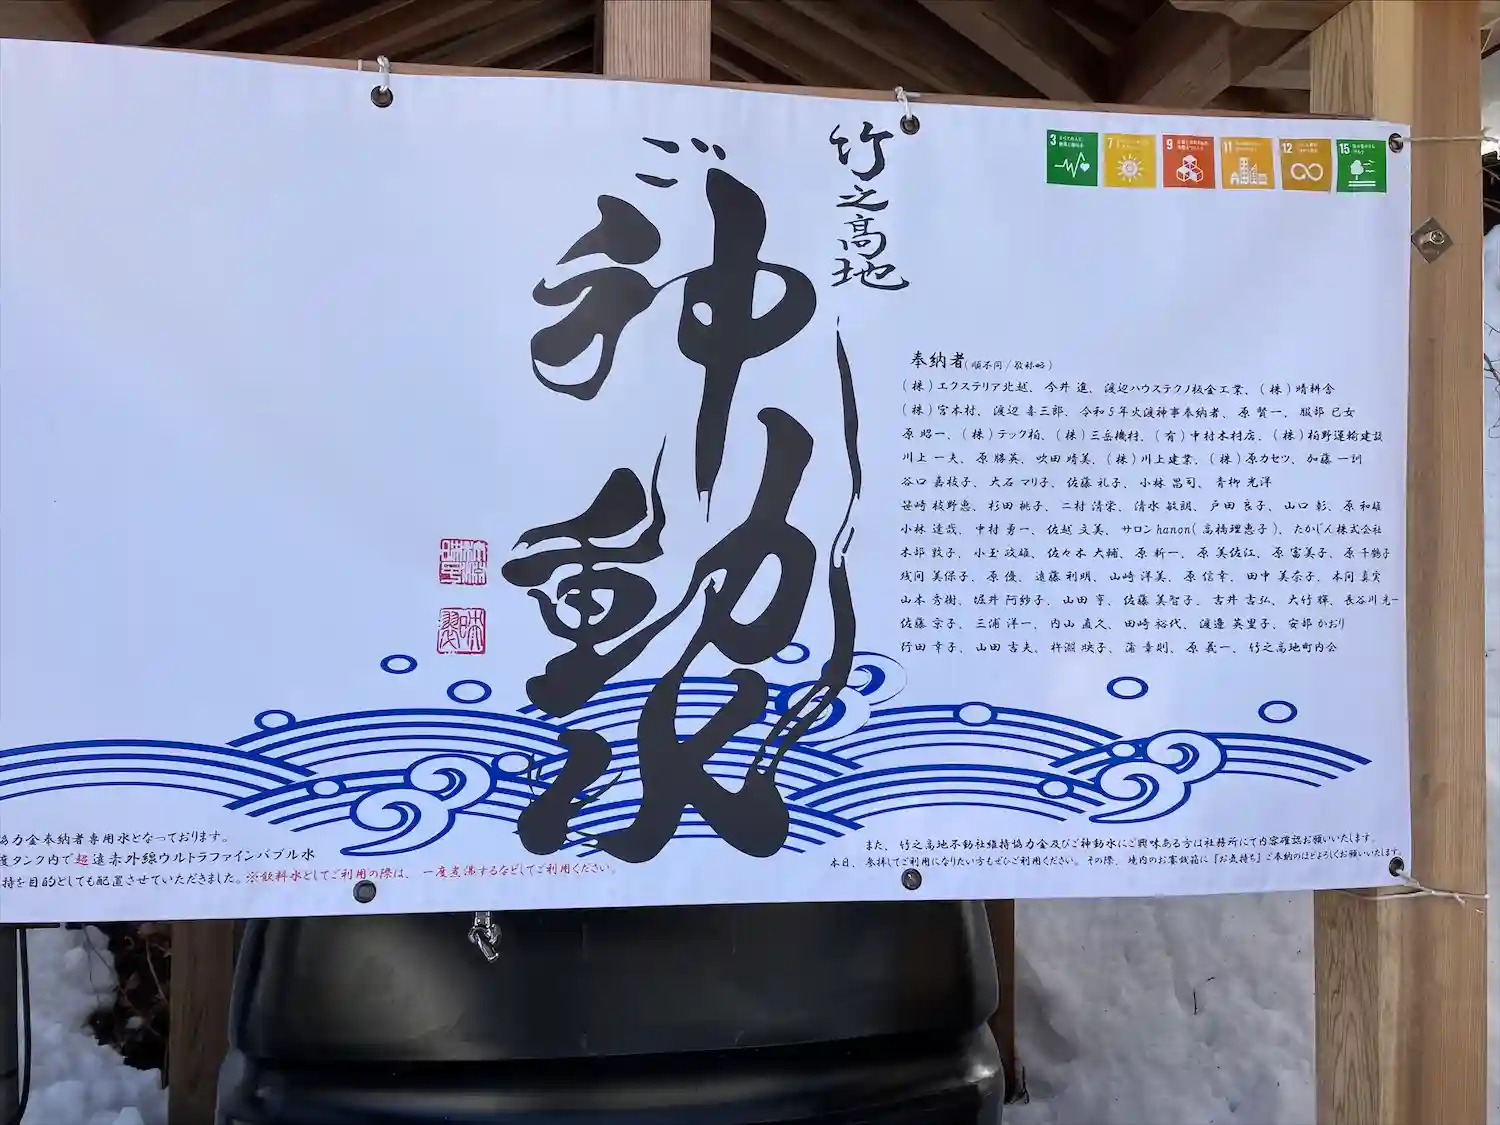 竹之高地
ご神動水
3
7
9
11
12
15
奉納者(順不同/敬称略)
(株)エクステリア北越、 今井 進、 渡辺ハウステクノ板金工業、 (株)晴耕舎
(株)宮本村、 渡辺 喜三郎、 令和5年火渡神事奉納者、 原 賢一、 服部 巳女
原 昭一、 (株)テック柏、 (株)三岳機材、 (有)中村木材店、 (株)柏野運輸建設
川上 一夫、 原 勝英、 吹田 靖美、 (株)川上建業、 (株)原カセツ、 加藤 一訓
谷口 嘉枝子、 大石 マリ子、 佐藤 礼子、 小林 昌司、 青柳 光洋
笹崎 枝野恵、 杉田 桃子、 二村 清栄、 清水 敏朗、 戸田 良子、 山口 彰、 原 和雄
小林 達哉、 中村 勇一、 佐越 文美、 サロンhanon(高橋理恵子)、 たかじん株式会社
木部 敦子、 小玉 政雄、 佐々木 大輔、 原 新一、 原 美佐江、 原 富美子、 原 千鶴子
浅間 美保子、 原 優、 遠藤 利明、 山崎 洋美、 原 信幸、 田中 美奈子、 本間 真実
山本 秀樹、 堀井 阿紗子、 山田 亨、 佐藤 美智子、 古井 古弘、 大竹 輝、 長谷川 光一
佐藤 京子、 三浦 洋一、 内山 直久、 田崎 裕代、 渡邉 英里子、 安部 かおり
行田 幸子、 山田 吉夫、 杵淵 映子、 蒲 章則、 原 義一、 竹之高地町内会
協力金奉納者専用水となっております。
度タンク内で超遠赤外線ウルトラファインバブル水
持を目的としても配置させていただきました。※飲料水としてご利用の際は、 一度煮沸するなどしてご利用ください。
また、 竹之高地不動社維持協力金及びご神動水にご興味ある方は社務所にて内容確認お願いいたします。
本日、 参拝してご利用になりたい方もぜひご利用ください。その際、 境内のお賽銭箱に「お気持ち」ご奉納のほどよろしくお願いいたします。